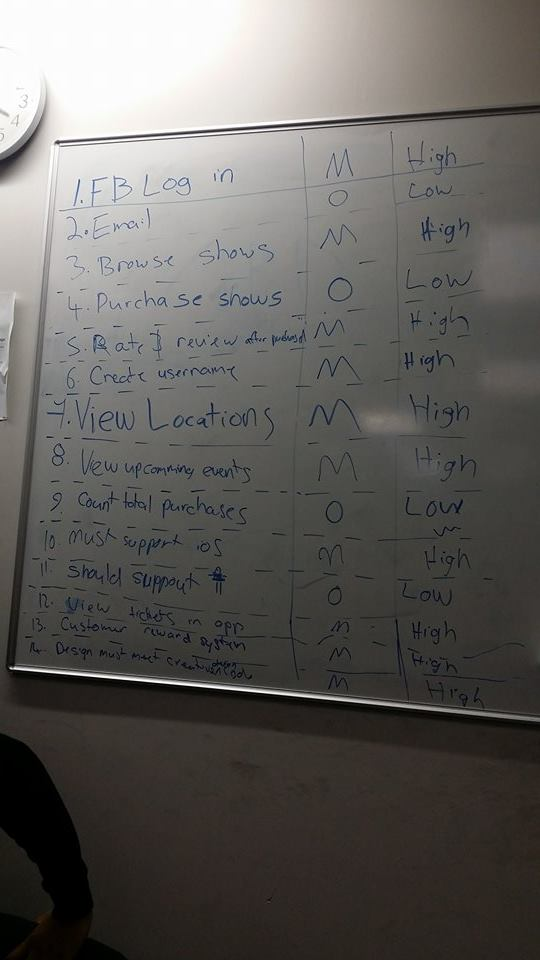 1. FB Log in M High
2. Email O Low
3. Browse shows M High
4. Purchase shows O Low
5. Rate & review after purchase M High
6. Create username M High
7. View Locations M High
8. Vew upcomming events M High
9. Count total purchases O Low
10. Must support iOS M High
11. Should support O Low
12. View tickets in app M High
13. Customer reward system M High
14. Design must meet M High
3
4
5